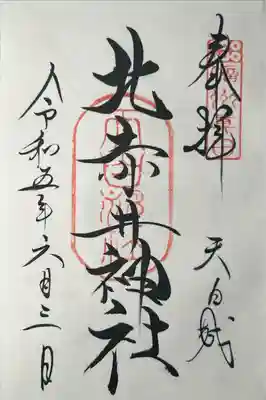 奉拝
天白
北赤井神社
令和五年六月三日